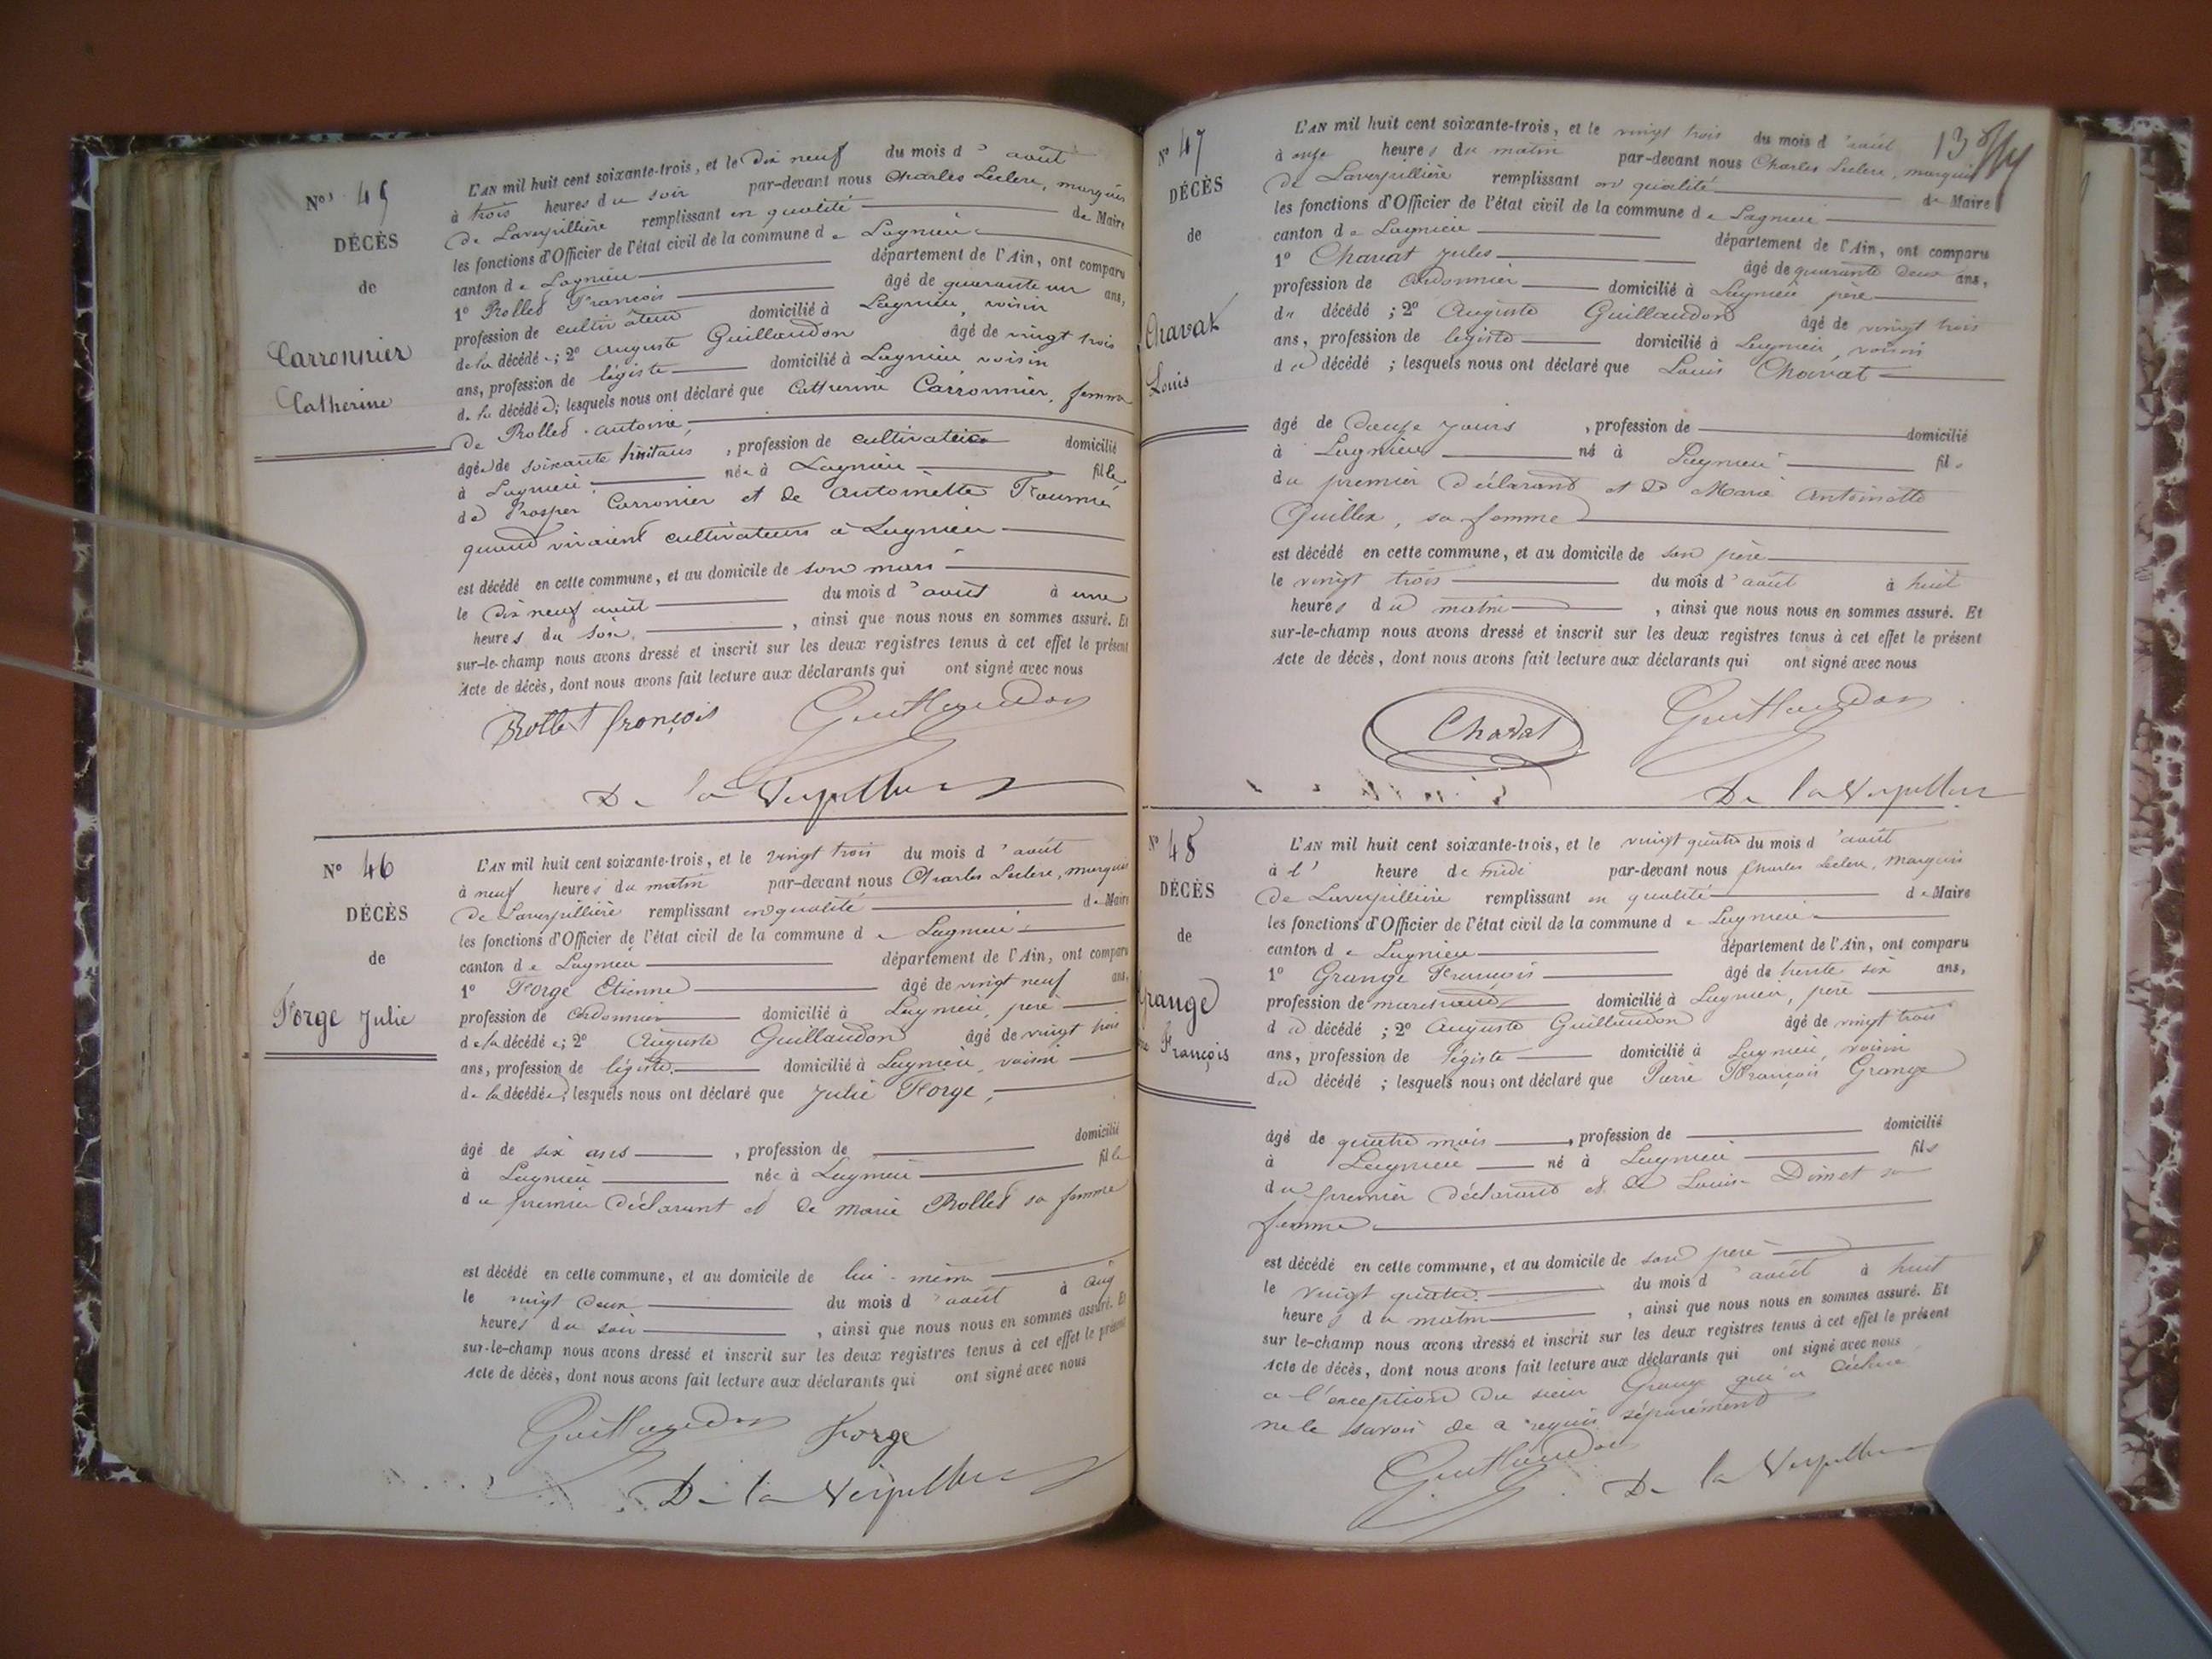 N° 45
DÉCÈS
de
Carronnier
Catherine
L'AN mil huit cent soixante-trois, et le Dix neuf du mois d'août
à trois heures du soir par-devant nous Charles Leclerc, marquis
de Laverpillière remplissant en qualité de Maire
les fonctions d'Officier de l'état civil de la commune de Lagnieu
canton de Lagnieu département de l'Ain, ont comparu
1° Rollet François âgé de quarante un ans,
profession de cultivateur domicilié à Lagnieu, voisin
de la décédée; 2° Auguste Guillaudon âgé de vingt trois
ans, profession de légiste domicilié à Lagnieu voisin
de la décédée; lesquels nous ont déclaré que Catherine Carronnier, femme
de Rollet Antoine,
âgée de soixante huit ans, profession de cultivatrice domicilié
à Lagnieu, née à Lagnieu fille
de Prosper Carronier et de Antoinette
quand vivaient cultivateurs à Lagnieu
est décédé en cette commune, et au domicile de son mari
le dix neuf août du mois d'août à une
heures du soir, ainsi que nous nous en sommes assuré. Et
sur-le-champ nous avons dressé et inscrit sur les deux registres tenus à cet effet le présent
Acte de décès, dont nous avons fait lecture aux déclarants qui ont signé avec nous
Rollet françois Guillaudon
De la Verpillière
N° 46
DÉCÈS
de
Forge Julie
L'AN mil huit cent soixante-trois, et le vingt trois du mois d'août
à neuf heures du matin par-devant nous Charles Leclerc, marquis
de Laverpillière remplissant en qualité de Maire
les fonctions d'Officier de l'état civil de la commune de Lagnieu
canton de Lagnieu département de l'Ain, ont comparu
1° Forge Etienne âgé de vingt neuf ans,
profession de Cordonnier domicilié à Lagnieu, père
de la décédée; 2° Auguste Guillaudon âgé de vingt trois
ans, profession de légiste, domicilié à Lagnieu, voisin
de la décédée; lesquels nous ont déclaré que Julie Forge,
âgé de six ans, profession de domicilié
à Lagnieu née à Lagnieu fille
du premier déclarant et de Marie Rollet sa femme
est décédé en cette commune, et au domicile de lui-même
le vingt deux du mois d'août à cinq
heures du soir, ainsi que nous nous en sommes assuré. Et
sur-le-champ nous avons dressé et inscrit sur les deux registres tenus à cet effet le présent
Acte de décès, dont nous avons fait lecture aux déclarants qui ont signé avec nous
Guillaudon Forge
De la Verpillière
138
N° 47
DÉCÈS
de
Chavat
Louis
L'AN mil huit cent soixante-trois, et le vingt trois du mois d'août
à onze heures du matin par-devant nous Charles Leclerc, marquis
de Laverpillière remplissant en qualité de Maire
les fonctions d'Officier de l'état civil de la commune de Lagnieu
canton de Lagnieu département de l'Ain, ont comparu
1° Chavat Jules âgé de quarante deux ans,
profession de Cordonnier domicilié à Lagnieu père
du décédé; 2° Auguste Guillaudon âgé de vingt trois
ans, profession de légiste domicilié à Lagnieu, voisin
du décédé; lesquels nous ont déclaré que Louis Chavat
âgé de Douze jours, profession de domicilié
à Lagnieu né à Lagnieu fils
du premier déclarant et de Marie Antoinette
Quillex, sa femme
est décédé en cette commune, et au domicile de son père
le vingt trois du mois d'août à huit
heures du matin, ainsi que nous nous en sommes assuré. Et
sur-le-champ nous avons dressé et inscrit sur les deux registres tenus à cet effet le présent
Acte de décès, dont nous avons fait lecture aux déclarants qui ont signé avec nous
Chavat Guillaudon
De la Verpillière
N° 48
DÉCÈS
de
Grange
François
L'AN mil huit cent soixante-trois, et le vingt quatre du mois d'août
à l'heure de midi par-devant nous Charles Leclerc, marquis
de Laverpillière remplissant en qualité de Maire
les fonctions d'Officier de l'état civil de la commune de Lagnieu
canton de Lagnieu département de l'Ain, ont comparu
1° Grange François âgé de trente six ans,
profession de marchand domicilié à Lagnieu, père
du décédé; 2° Auguste Guillaudon âgé de vingt trois
ans, profession de légiste domicilié à Lagnieu, voisin
du décédé; lesquels nous ont déclaré que Pierre François Grange
âgé de quatre mois, profession de domicilié
à Lagnieu né à Lagnieu fils
du premier déclarant et de Louise Dimet sa
femme
est décédé en cette commune, et au domicile de son père
le vingt quatre du mois d'août à huit
heures du matin, ainsi que nous nous en sommes assuré. Et
sur le-champ nous avons dressé et inscrit sur les deux registres tenus à cet effet le présent
Acte de décès, dont nous avons fait lecture aux déclarants qui ont signé avec nous
a l'exception du sieur Grange qui a déclaré
ne le savoir de a requis séparément
Guillaudon De la Verpillière